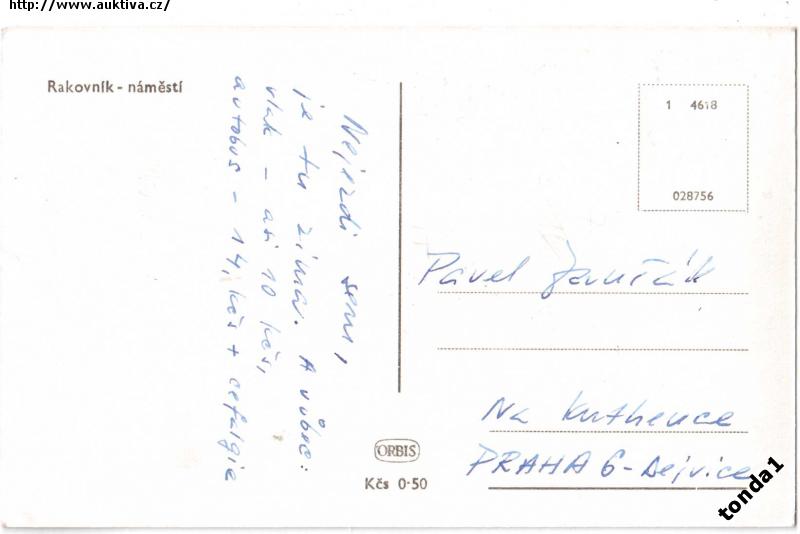 http://www.auktiva.cz/
Rakovník - náměstí
Nejezdi sem,
je tu zima. A vůbec:
vlak - asi 10 kčs,
autobus - 14, kčs + cefalgie
1 4618
028756
Pavel
Na Kuthence
PRAHA 6 - Dejvice
ORBIS
Kčs 0·50
tonda1